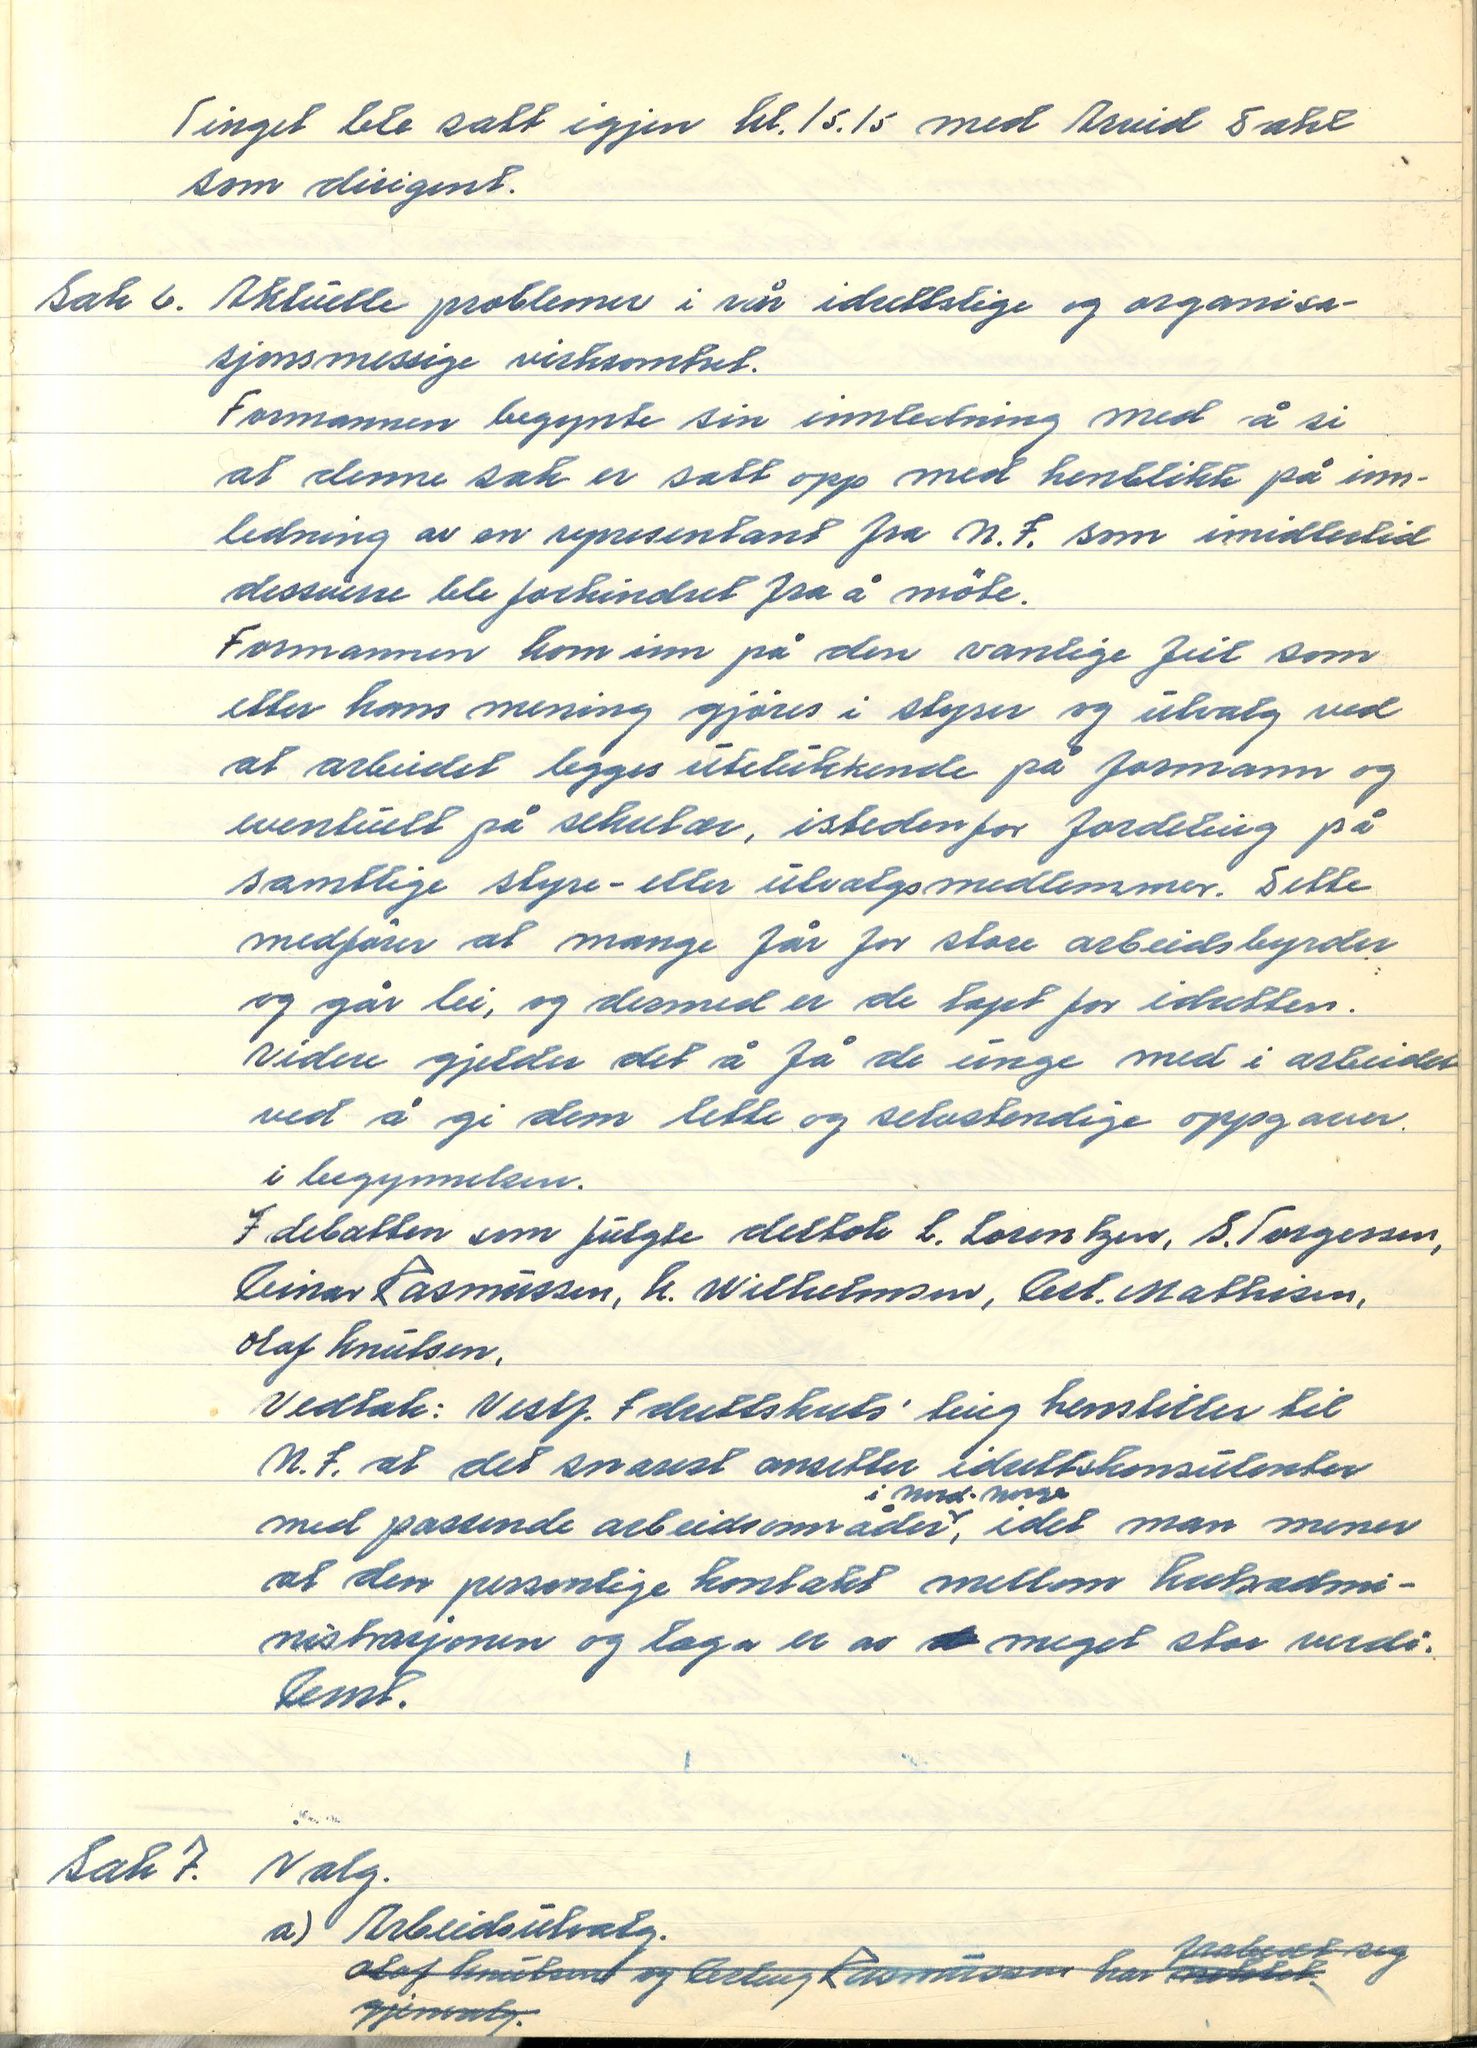 Tinget ble satt igjen kl. 15.15 med Arvid Dahl
som dirigent.
Sak 6. Aktuelle problemer i vår idrettslige og organisa-
sjonsmessige virksomhet.
Formannen begynte sin innledning med å si
at denne sak er satt opp med henblikk på inn-
ledning av en representant fra N.I. som imidlertid
dessverre ble forhindret fra å möte.
Formannen kom inn på den vanlige feil som
etter hans mening gjöres i styrer og utvalg ved
at arbeidet legges utelukkende på formann og
eventuelt på sekretær, istedenfor fordeling på
samtlige styre- eller utvalgsmedlemmer. Dette
medförer at mange får for store arbeidsbyrder
og går lei, og dermed er de tapt for idretten.
Videre gjelder det å få de unge med i arbeidet
ved å gi dem lette og selvstendige oppgaver
i begynnelsen.
I debatten som fulgte deltok L. Lorentzen, S. Torgersen,
Einar Rasmussen, H. Wilhelmsen, Edl. Mathisen,
Olaf Knutsen.
Vedtak: Vestf. Idrettskrets' ting henstiller til
N.I. at det snarest ansetter idrettskonsulenter
i Nord-Norge
med passende arbeidsområder, idet man mener
at den personlige kontakt mellom kretsadmi-
nistrasjonen og laga er av meget stor verdi.
Enst.
Sak 7. Valg.
a) Arbeidsutvalg.
frabedt seg
Olaf Knutsen og Erling Rasmussen har
gjenvalg.